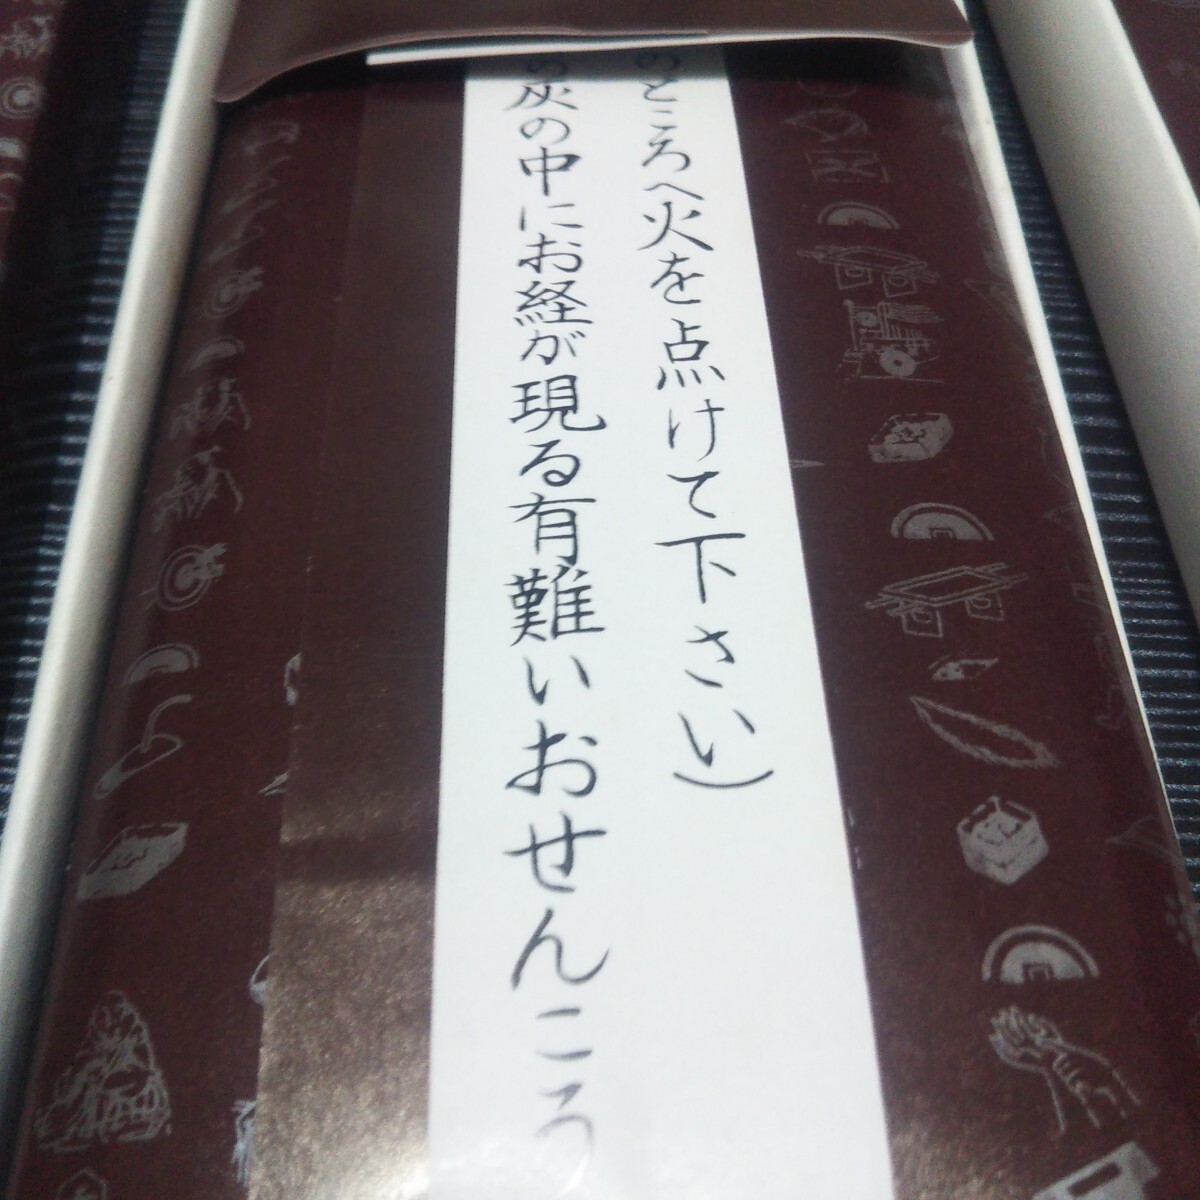 のところへ火を点けて下さい)
炭の中にお経が現る有難いおせんこう